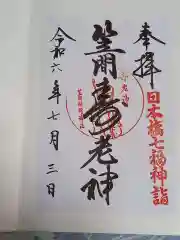 奉拝
日本橋七福神詣
笠間寿老神
令和六年七月三日